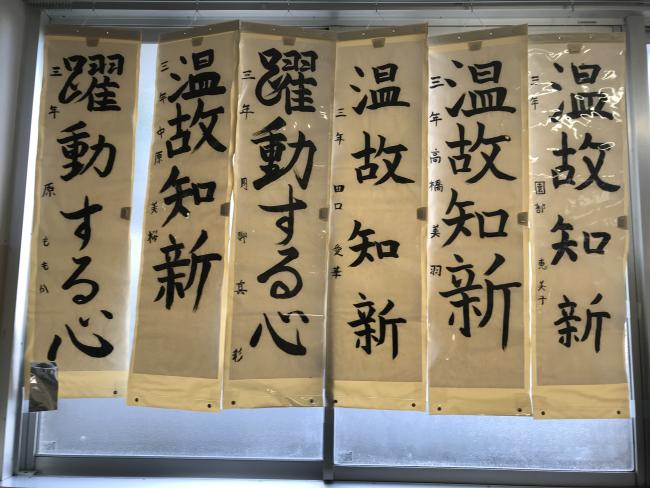 温故知新
三年 園部 恵美子
温故知新
三年 高橋美羽
温故知新
三年 田口
躍動する心
三年 月野 真彩
温故知新
三年 中原 美桜
躍動する心
三年 原 ももか